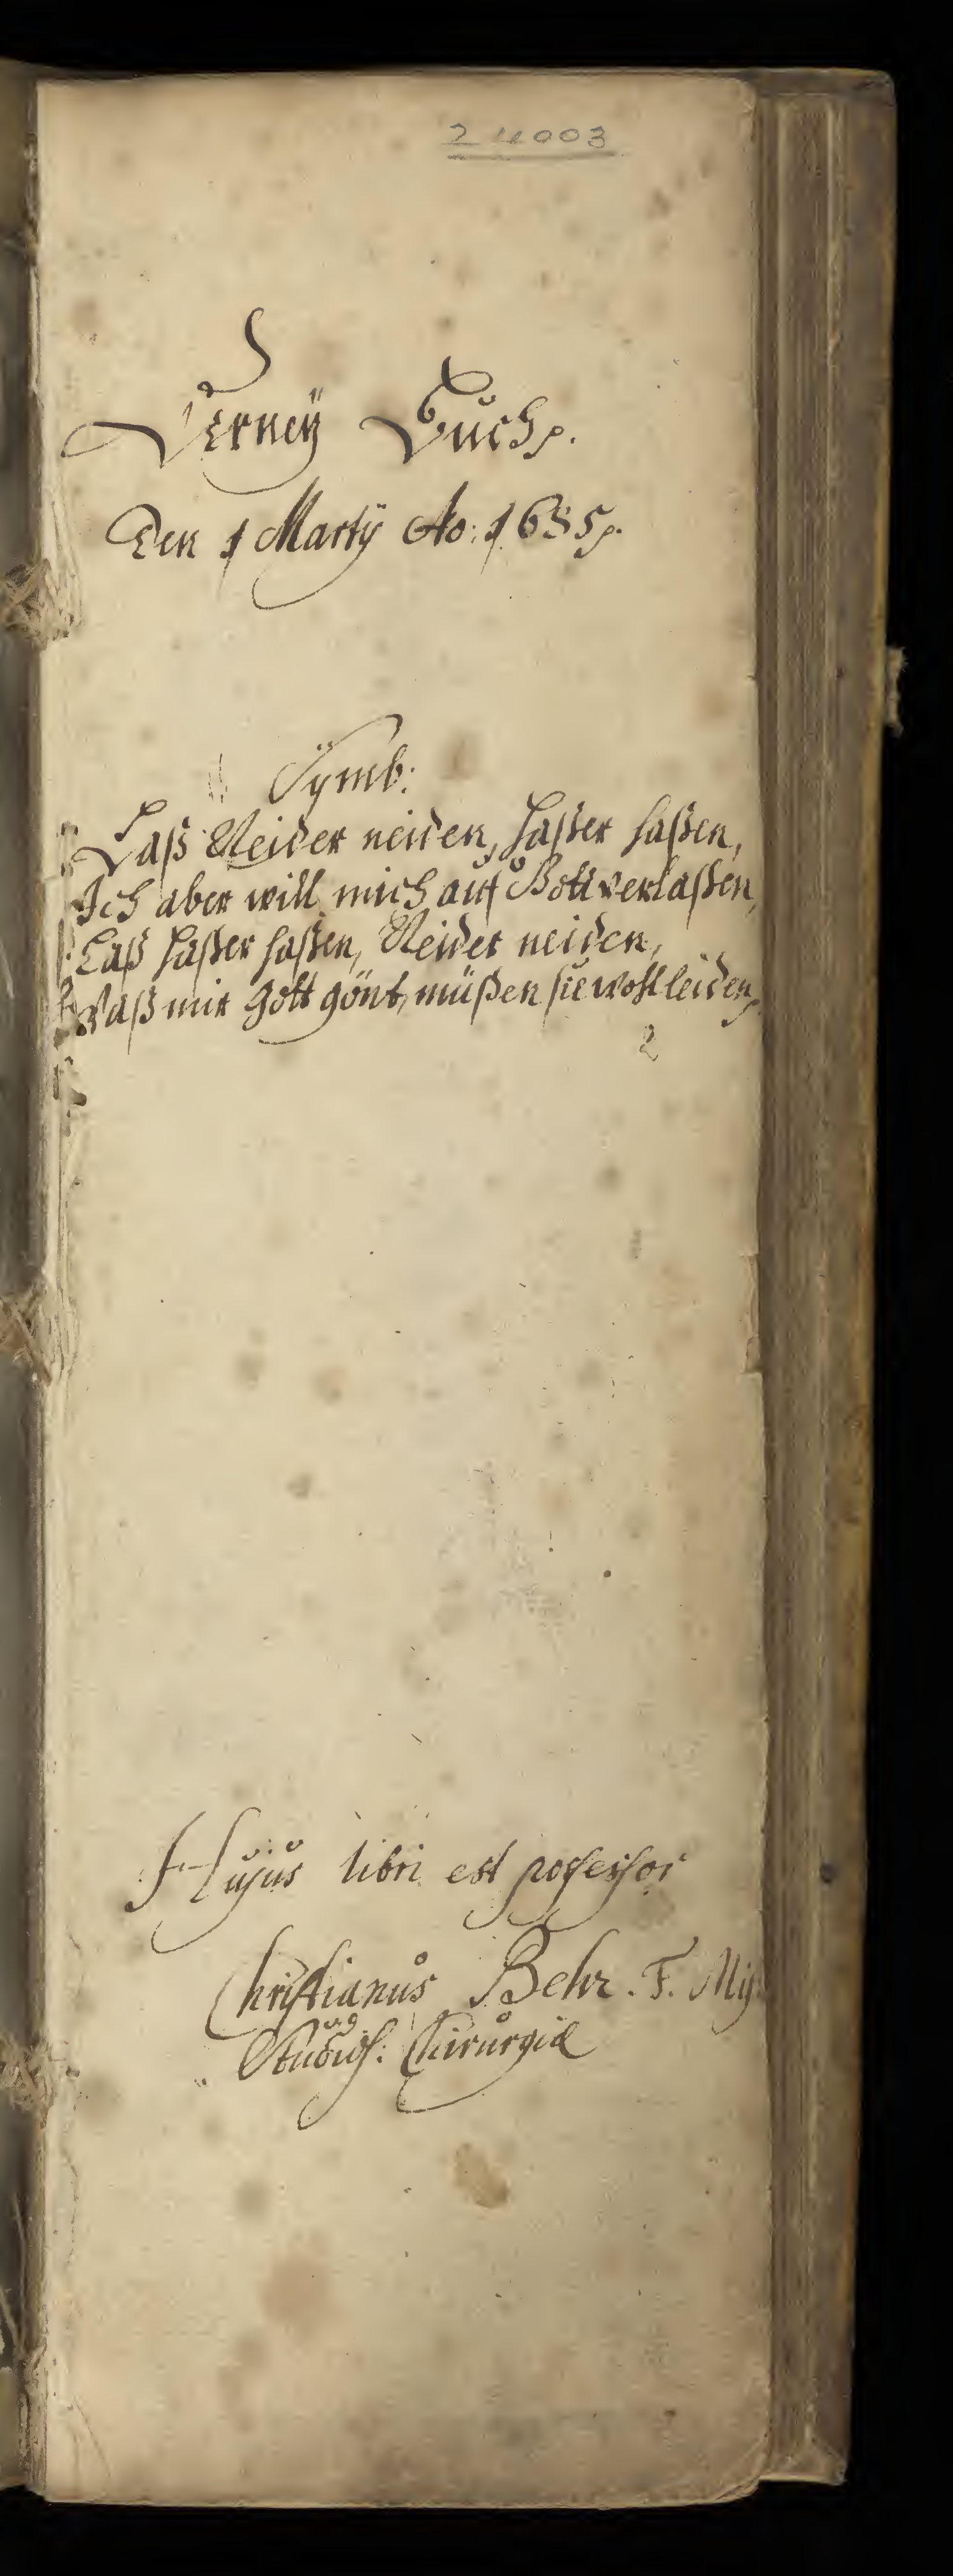 24003
Buch p.
Den 1 Martÿ Ao: 1685 p.
Symb:
Laß Neider neiden, haßer haßen,
Ich aber will mich auf Gott verlaßen,
Laß haßer haßen, Neider neiden,
Waß mir Gott gönt, müßen sie wohl leiden p.
2
Hujus libri est possessor
Christianus Behr. F. Mis:
Studios: Chirurgiæ